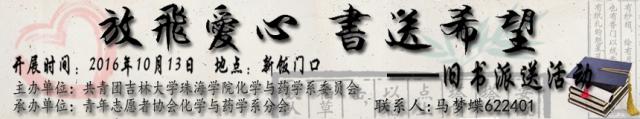 放飛愛心 書送希望
——旧书派送活动
开展时间：2016年10月13日 地点：新饭门口
主办单位：共青团吉林大学珠海学院化学与药学系委员会
承办单位：青年志愿者协会化学与药学系分会
联系人:马梦蝶622401